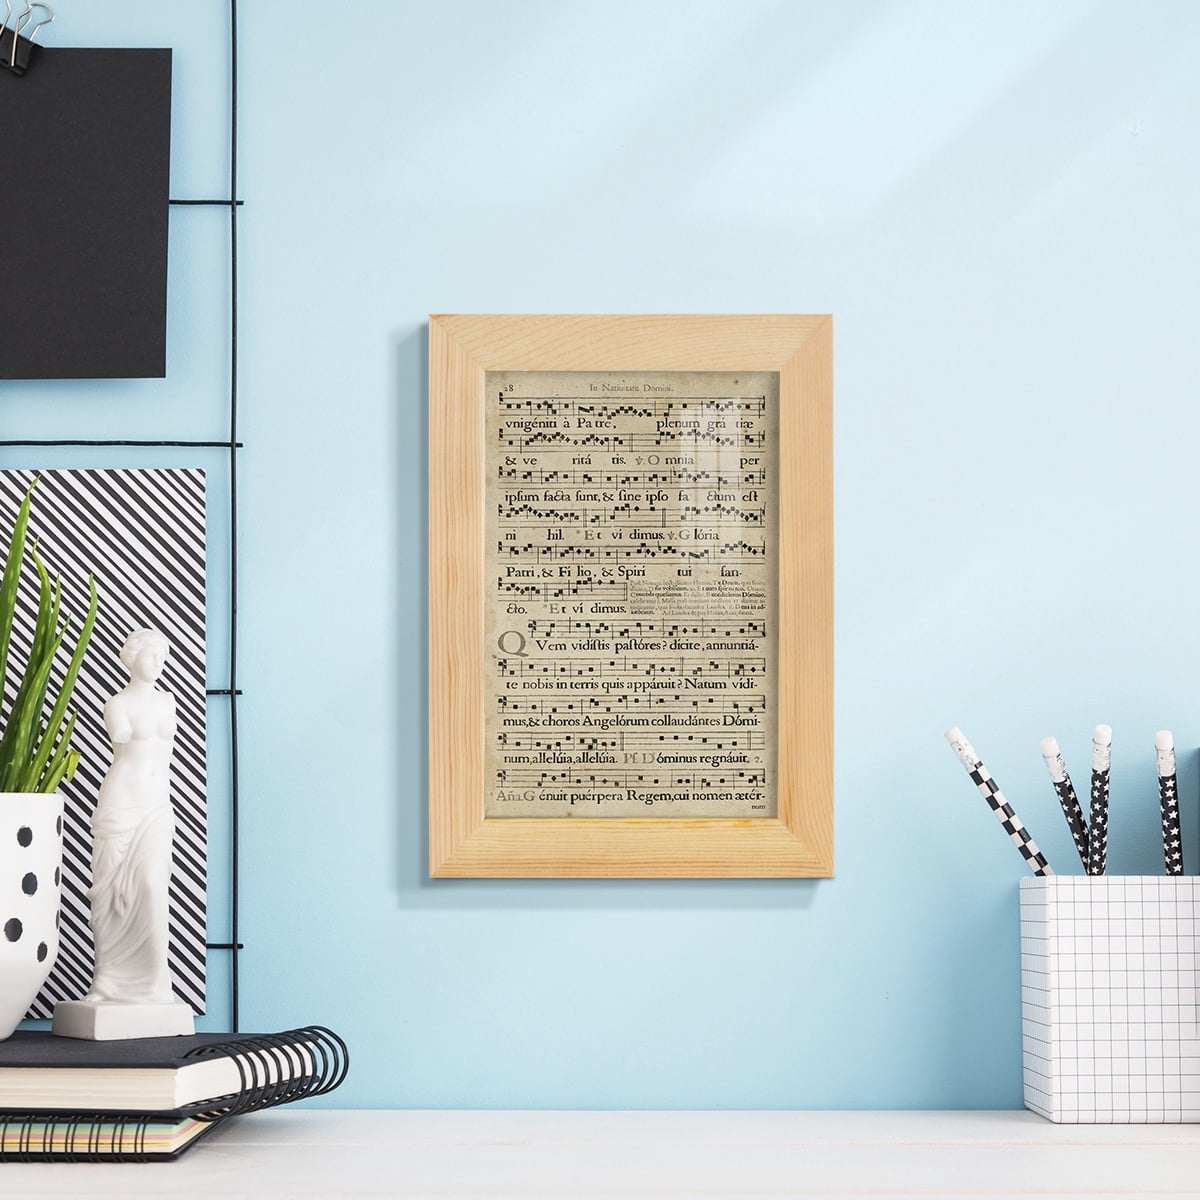 28 In Natiuitate Domini.
vnigéniti à Patre, plenum grá tiæ
& ve ritá tis. ℣. O mnia per
ipſum facta ſunt, & ſine ipſo fa ctum eſt
ni hil. * Et vi dimus. ℣. Glória
Patri, & Fí lio, & Spirí tui ſan-
cto. * Et ví dimus.
QVem vidíſtis paſtóres? dícite, annuntiá-
te nobis in terris quis appáruit? Natum vídi-
mus, & choros Angelórum collaudántes Dómi-
num, allelúia, allelúia. Pſ. Dóminus regnáuit. 2.
Aña. Génuit puérpera Regem, cui nomen ætér-
num